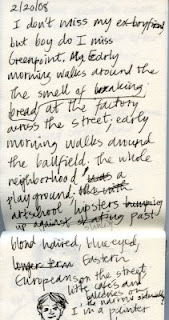 2/20/08
I don't miss my ex-boyfriend
but boy do I miss
Greenpoint. My Early
morning walks around the
the smell of breaking
bread at the factory
across the street, early
morning walks around
the ballfield, the whole
neighborhood was a
playground, the with
artschool hipsters
up against skating past,
blond haired, blue eyed,
Eastern
Europeans on the street,
little cafes and
on
the narrow sidewalks
I'm a painter